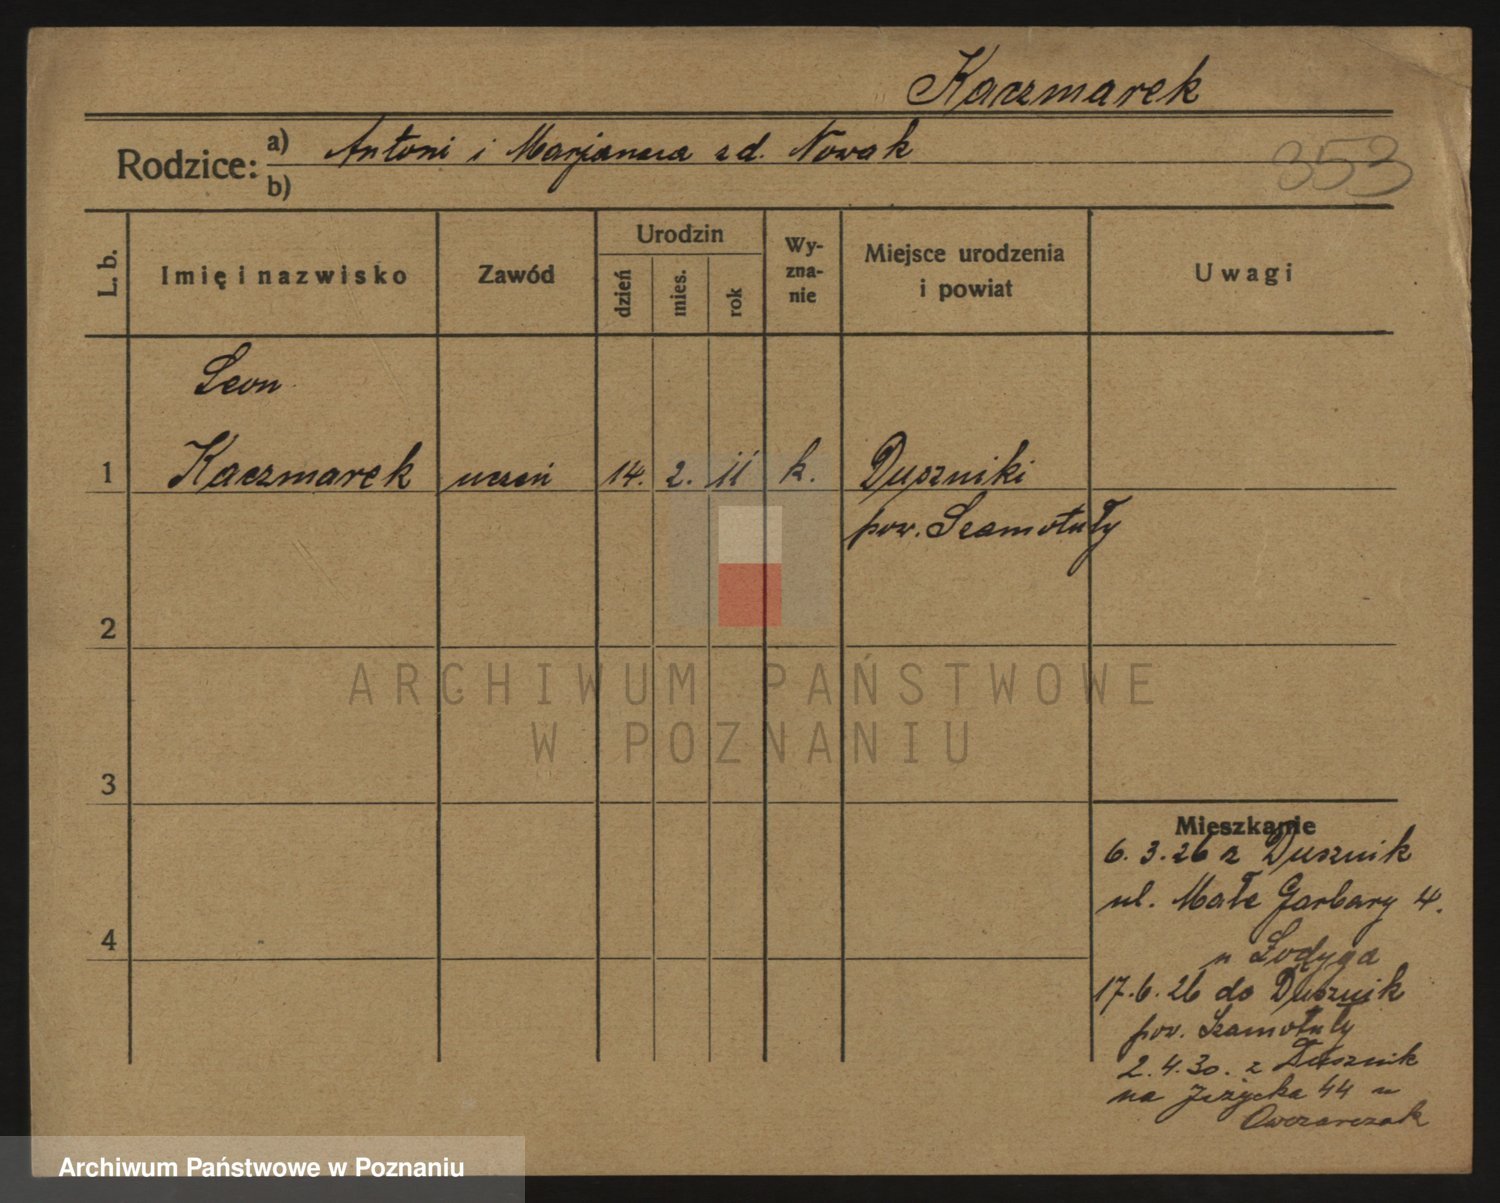 Kaczmarek
Rodzice:
a) Antoni i Marjanna zd. Nowak
b)
353
L. b.
Imię i nazwisko
Zawód
Urodzin
dzień
mies.
rok
Wy-
zna-
nie
Miejsce urodzenia
i powiat
Uwagi
Leon
1 Kaczmarek uczeń 14. 2. 11 k. Duszniki
pow. Szamotuły
2
ARCHIWUM PAŃSTWOWE
W POZNANIU
3
Mieszkanie
6. 3. 26 z Dusznik
ul. Małe Garbary 4.
4
u Łodyga
17. 6. 26 do Dusznik
pow. Szamotuły
2. 4. 30. z Dusznik
na Jeżycka 44 u
Owczarczak
Archiwum Państwowe w Poznaniu